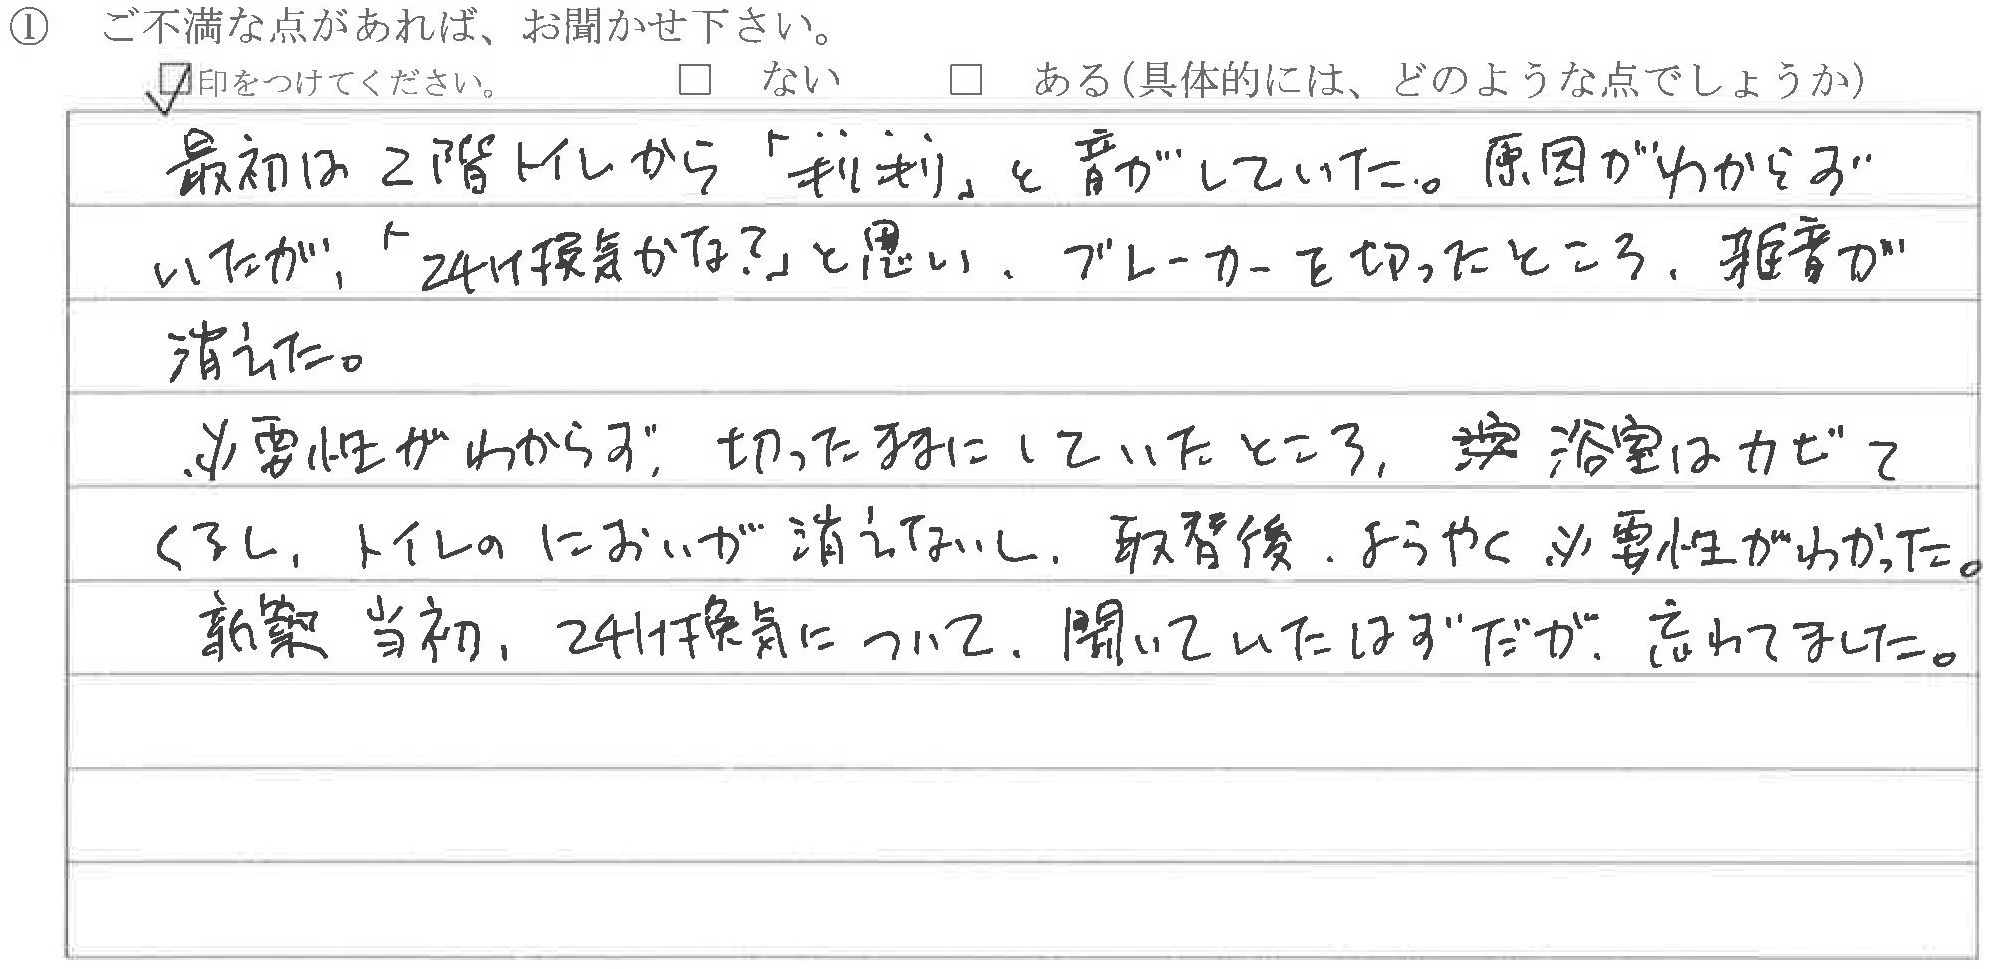 ① ご不満な点があれば、お聞かせ下さい。
☑印をつけてください。 □ ない □ ある(具体的には、どのような点でしょうか)
最初は2階トイレから「　　」と音がしていた。原因がわからず
いたが、「24H換気かな?」と思い、ブレーカーを切ったところ、雑音が
消えた。
必要性がわからず、切ったままにしていたところ、浴室はカビて
くるし、トイレのにおいが消えないし、取替後、ようやく必要性がわかった。
新築当初、24H換気について、聞いていたはずだが、忘れてました。